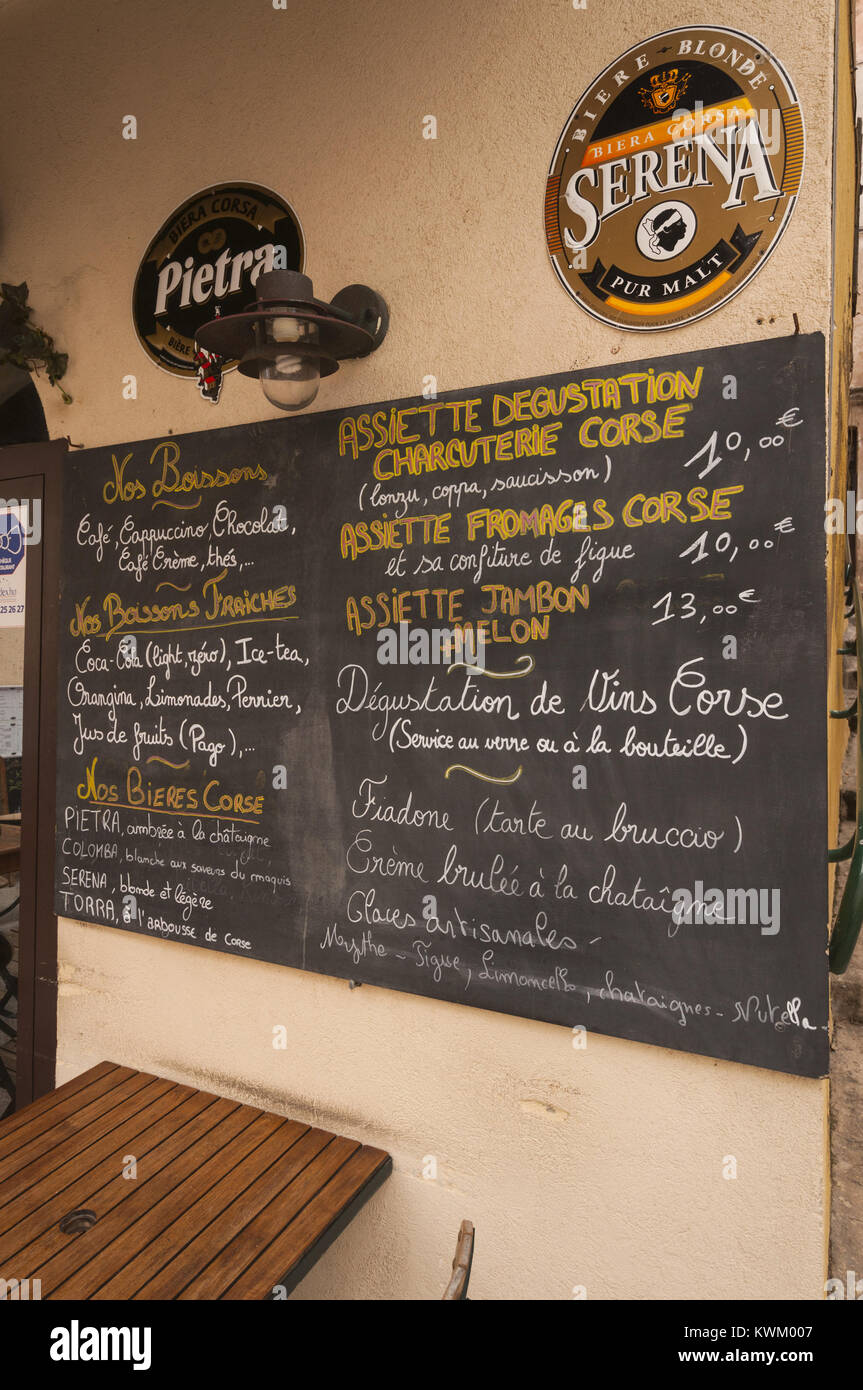 BIERE - BLONDE
BIERA CORSA
SERENA
PUR MALT
BIERA CORSA
Pietra
BIÈRE
Nos Boissons
Café, Cappuccino, Chocolat,
Café Crème, thés,...
Nos Boissons FRAICHES
Coca-Cola (light, zéro), Ice-tea,
Orangina, Limonades, Perrier,
Jus de fruits (Pago),...
Nos BIERES CORSE
PIETRA, ambrée à la châtaigne
COLOMBA, blanche aux saveurs du maquis
SERENA, blonde et légère
TORRA, à l'ARBOUSSE DE CORSE
ASSIETTE DEGUSTATION
CHARCUTERIE CORSE 10,00€
(lonzu, coppa, saucisson)
ASSIETTE FROMAGES CORSE
et sa confiture de figue 10,00€
ASSIETTE JAMBON 13,00€
+MELON
Dégustation de Vins Corse
(Service au verre ou à la bouteille)
Fiadone (tarte au bruccio)
Crème brulée à la chataîgne
Glaces artisanales -
Myrthe - Figue, Limoncello, chataignes - Nutella
25 26 27
alamy stock photo
KWM007
www.alamy.com